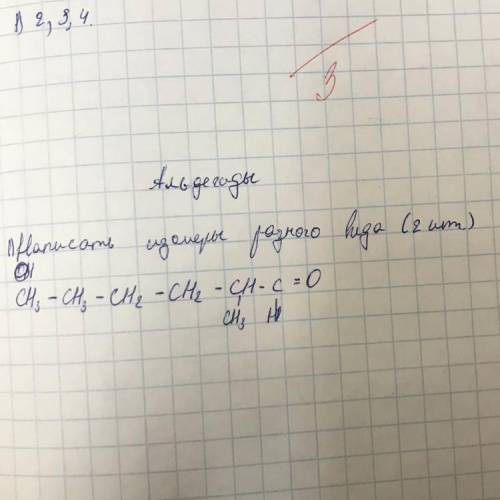 1) 2, 3, 4.
3
Альдегиды
1) Написать изомеры разного вида (2 шт)
CH₃ - CH₃ - CH₂ - CH₂ - CH - C = O
CH₃ H